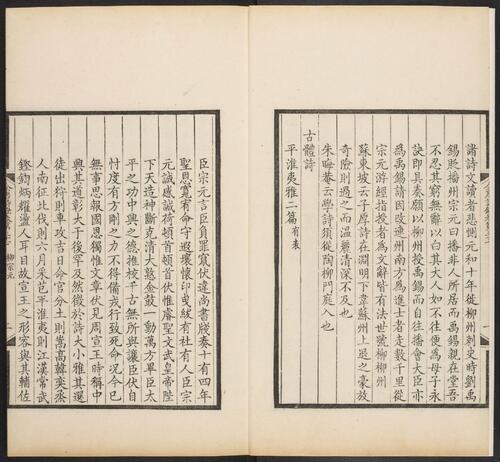 諸詩文讀者悲惻元和十年徙柳州刺史時劉禹
錫貶播州宗元曰播非人所居而禹錫親在堂吾
不忍其窮無辭以白其大人如不往便為母子永
訣即具奏願以柳州授禹錫而自往播會大臣亦
為禹錫請因改連州南方為進士者走數千里從
宗元游經指授者為文辭皆有法世號柳柳州
蘇東坡云子厚詩在淵明下韋蘇州上退之豪放
奇險則過之而温麗清深不及也
朱晦菴云學詩須從陶柳門庭入也
古體詩
平淮夷雅二篇有表
臣宗元言臣負罪竄伏違尚書牋奏十有四年
聖恩寬宥命守遐壤懷印曳紱有社有人臣宗
元誠感誠荷頓首頓首伏惟睿聖文武皇帝陛
下天造神斷克清大憝金鼓一動萬方畢臣太
平之功中興之德推校千古無所與讓臣伏自
忖度有方剛之力不得備戎行致死命況今已
無事思報國恩獨惟文章伏見周宣王時稱中
興其道彰大于後罕及然徵於詩大小雅其選
徒出狩則車攻吉日命官分土則嵩高韓奕烝
人南征北伐則六月采芑平淮夷則江漢常武
鏗鍧炳耀盪人耳目故宣王之形容與其輔佐
柳宗元
一